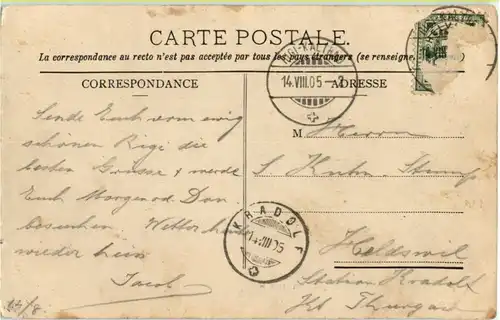 CARTE POSTALE.
La correspondance au recto n'est pas acceptée par tous les pays étrangers (se renseigner
CORRESPONDANCE
ADRESSE
RIGI-KALTBAD
14.VIII.05
Sende Euch vom ewig
schönen Rigi die
besten Grüsse & werde
Euch Morgen od. Don.
besuchen. Wetter
wieder fein
Jacob
M Herrn
S. Kuhn
Heldswil
Station Kradolf
Kt Thurgau
KRADOLF
14.VIII.05